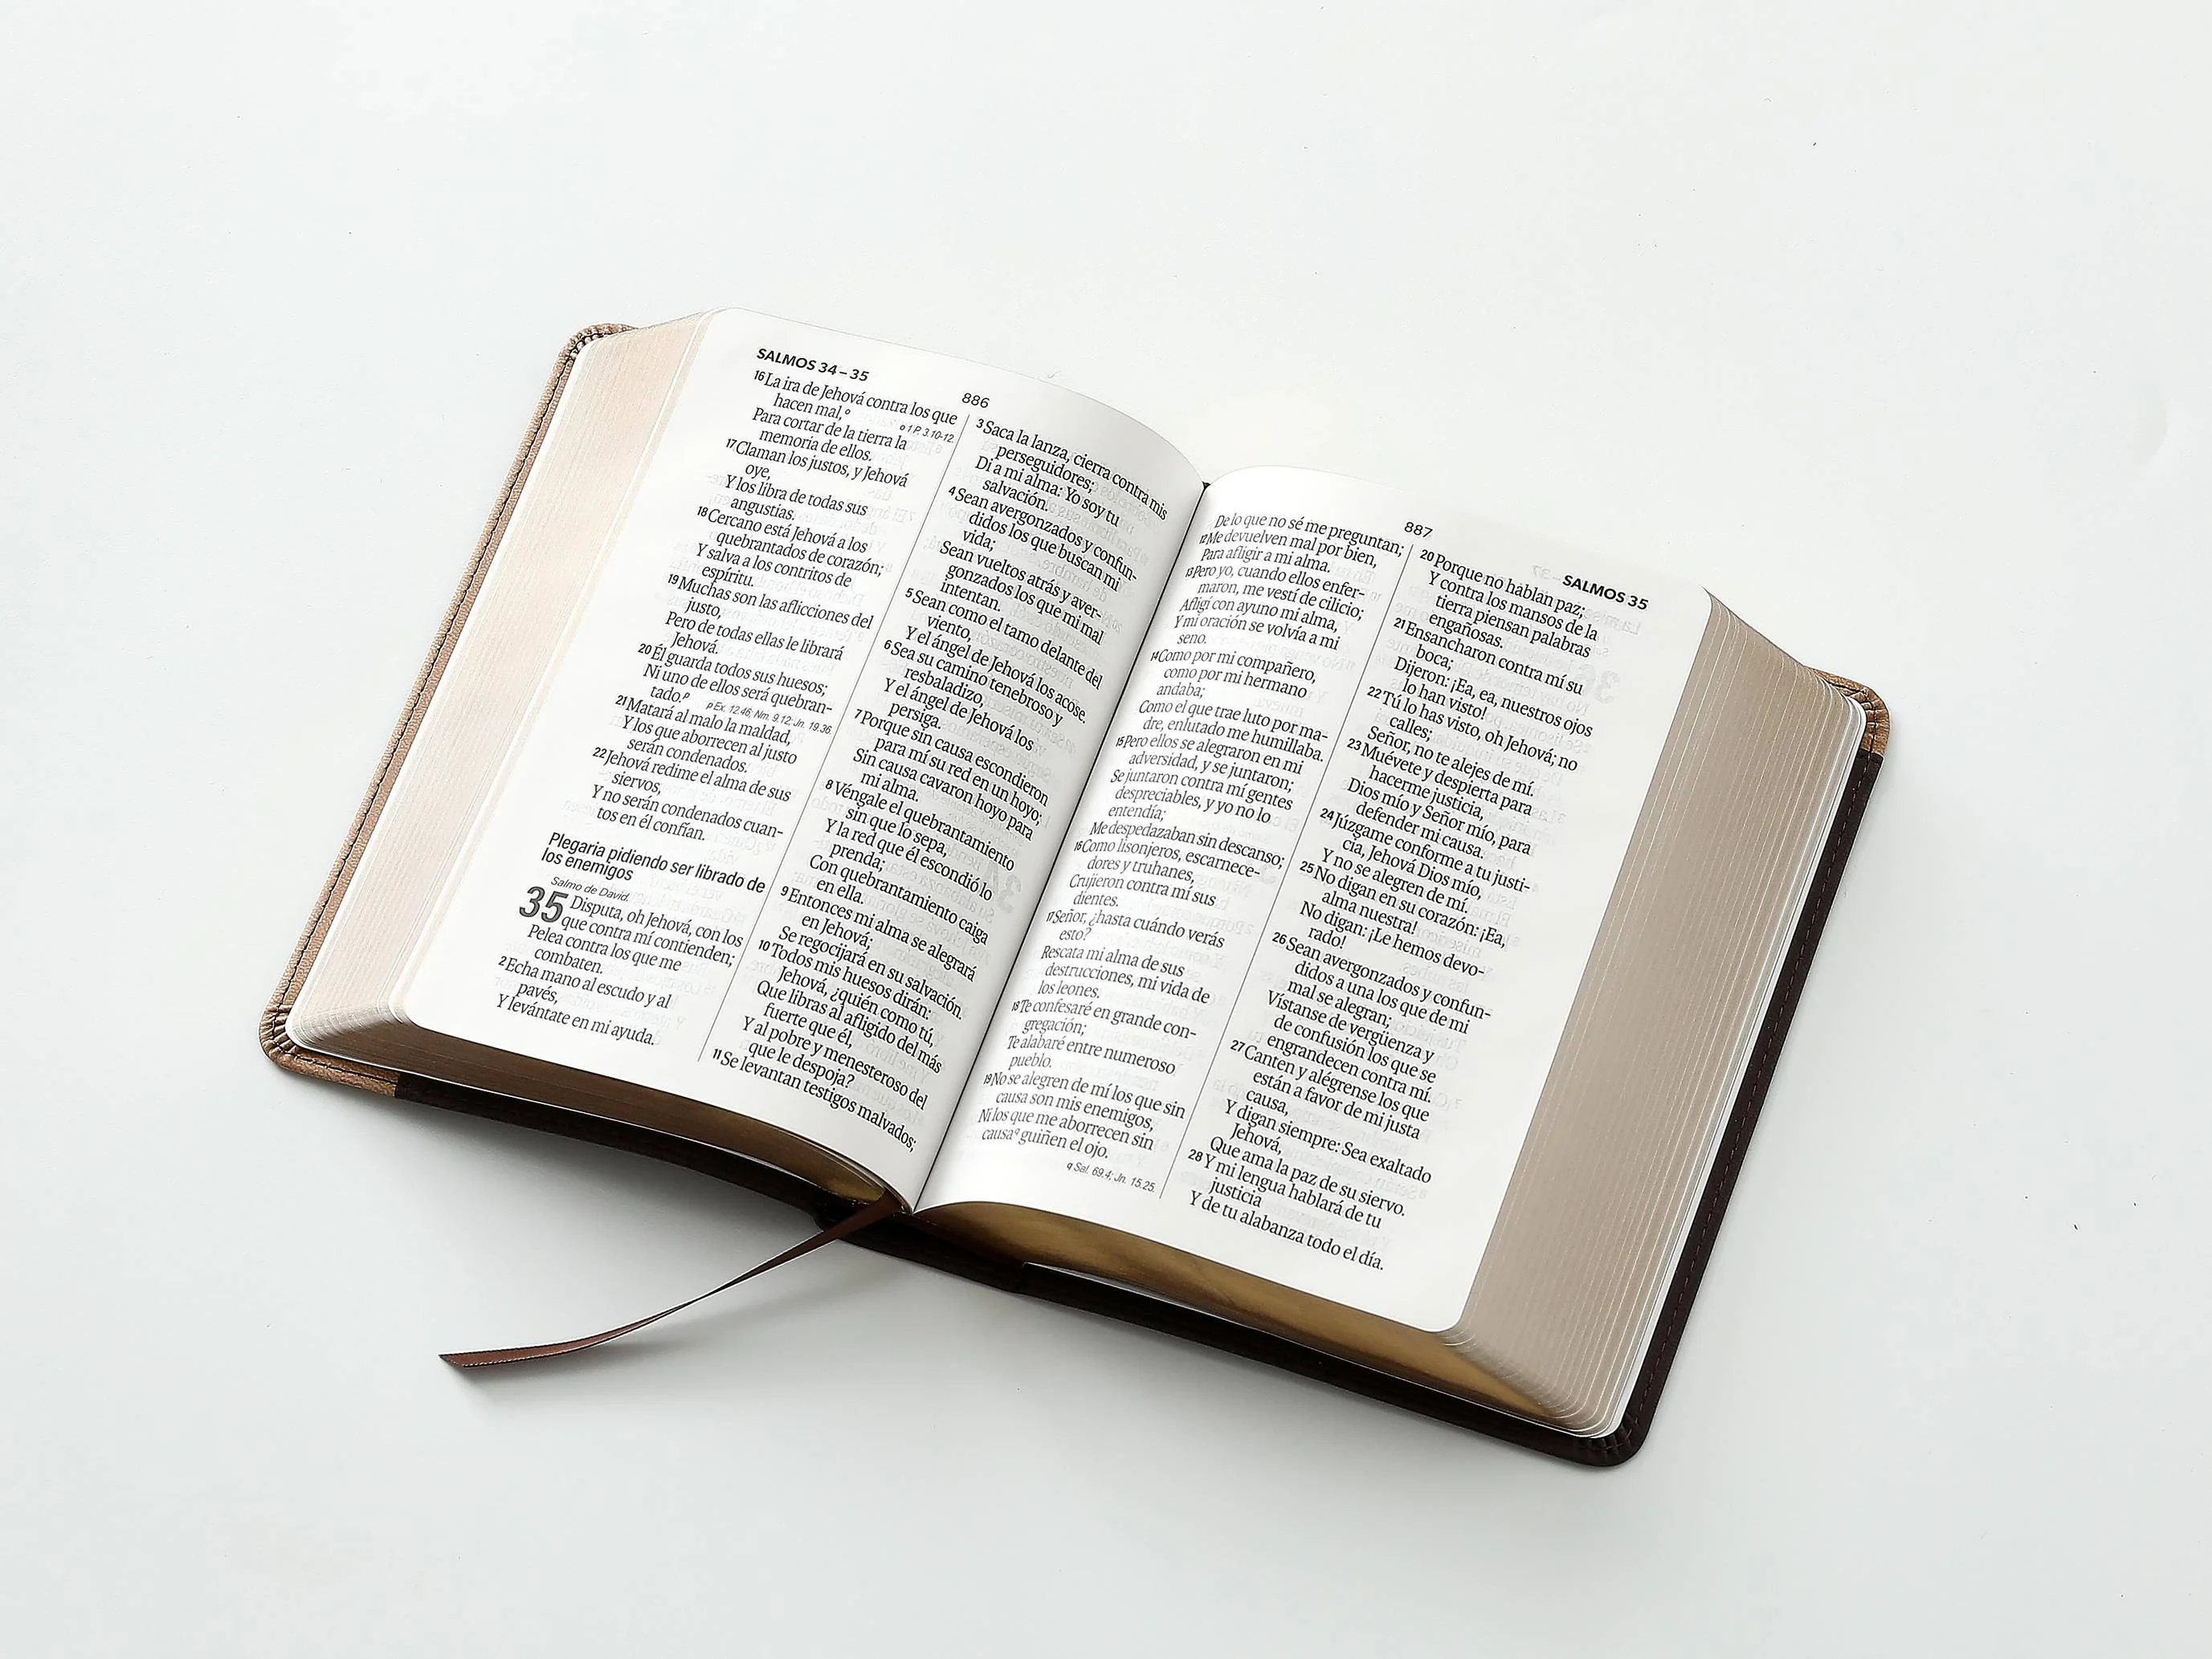 SALMOS 34–35
886
16La ira de Jehová contra los que
hacen mal,o
o 1 P. 3.10-12.
Para cortar de la tierra la
memoria de ellos.
17Claman los justos, y Jehová
oye,
Y los libra de todas sus
angustias.
18Cercano está Jehová a los
quebrantados de corazón;
Y salva a los contritos de
espíritu.
19Muchas son las aflicciones del
justo,
Pero de todas ellas le librará
Jehová.
20Él guarda todos sus huesos;
Ni uno de ellos será quebran-
tado.p
p Ex. 12.46; Nm. 9.12; Jn. 19.36.
21Matará al malo la maldad,
Y los que aborrecen al justo
serán condenados.
22Jehová redime el alma de sus
siervos,
Y no serán condenados cuan-
tos en él confían.
Plegaria pidiendo ser librado de
los enemigos
Salmo de David.
35 Disputa, oh Jehová, con los
que contra mí contienden;
Pelea contra los que me
combaten.
2Echa mano al escudo y al
pavés,
Y levántate en mi ayuda.
3Saca la lanza, cierra contra mis
perseguidores;
Di a mi alma: Yo soy tu
salvación.
4Sean avergonzados y confun-
didos los que buscan mi
vida;
Sean vueltos atrás y aver-
gonzados los que mi mal
intentan.
5Sean como el tamo delante del
viento,
Y el ángel de Jehová los acose.
6Sea su camino tenebroso y
resbaladizo,
Y el ángel de Jehová los
persiga.
7Porque sin causa escondieron
para mí su red en un hoyo;
Sin causa cavaron hoyo para
mi alma.
8Véngale el quebrantamiento
sin que lo sepa,
Y la red que él escondió lo
prenda;
Con quebrantamiento caiga
en ella.
9Entonces mi alma se alegrará
en Jehová;
Se regocijará en su salvación.
10Todos mis huesos dirán:
Jehová, ¿quién como tú,
Que libras al afligido del más
fuerte que él,
Y al pobre y menesteroso del
que le despoja?
11Se levantan testigos malvados;
887
SALMOS 35
De lo que no sé me preguntan;
12Me devuelven mal por bien,
Para afligir a mi alma.
13Pero yo, cuando ellos enfer-
maron, me vestí de cilicio;
Afligí con ayuno mi alma,
Y mi oración se volvía a mi
seno.
14Como por mi compañero,
como por mi hermano
andaba;
Como el que trae luto por ma-
dre, enlutado me humillaba.
15Pero ellos se alegraron en mi
adversidad, y se juntaron;
Se juntaron contra mí gentes
despreciables, y yo no lo
entendía;
Me despedazaban sin descanso;
16Como lisonjeros, escarnece-
dores y truhanes,
Crujieron contra mí sus
dientes.
17Señor, ¿hasta cuándo verás
esto?
Rescata mi alma de sus
destrucciones, mi vida de
los leones.
18Te confesaré en grande con-
gregación;
Te alabaré entre numeroso
pueblo.
19No se alegren de mí los que sin
causa son mis enemigos,
Ni los que me aborrecen sin
causaq guiñen el ojo.
q Sal. 69.4; Jn. 15.25.
20Porque no hablan paz;
Y contra los mansos de la
tierra piensan palabras
engañosas.
21Ensancharon contra mí su
boca;
Dijeron: ¡Ea, ea, nuestros ojos
lo han visto!
22Tú lo has visto, oh Jehová; no
calles;
Señor, no te alejes de mí.
23Muévete y despierta para
hacerme justicia,
Dios mío y Señor mío, para
defender mi causa.
24Júzgame conforme a tu justi-
cia, Jehová Dios mío,
Y no se alegren de mí.
25No digan en su corazón: ¡Ea,
alma nuestra!
No digan: ¡Le hemos devo-
rado!
26Sean avergonzados y confun-
didos a una los que de mi
mal se alegran;
Vístanse de vergüenza y
de confusión los que se
engrandecen contra mí.
27Canten y alégrense los que
están a favor de mi justa
causa,
Y digan siempre: Sea exaltado
Jehová,
Que ama la paz de su siervo.
28Y mi lengua hablará de tu
justicia
Y de tu alabanza todo el día.